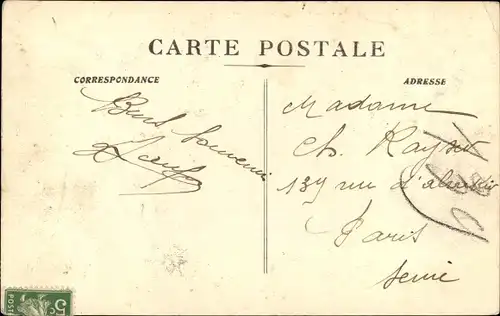 CARTE POSTALE
CORRESPONDANCE
Bons Souvenir
ADRESSE
Madame
Ch. Kayser
139 rue d'
Paris
Seine
5c
POSTES